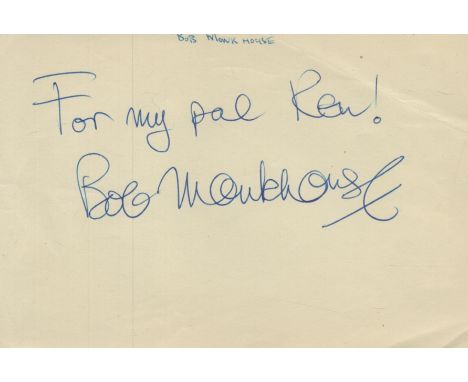 BOB MONKHOUSE
For my pal Ken!
Bob Monkhouse